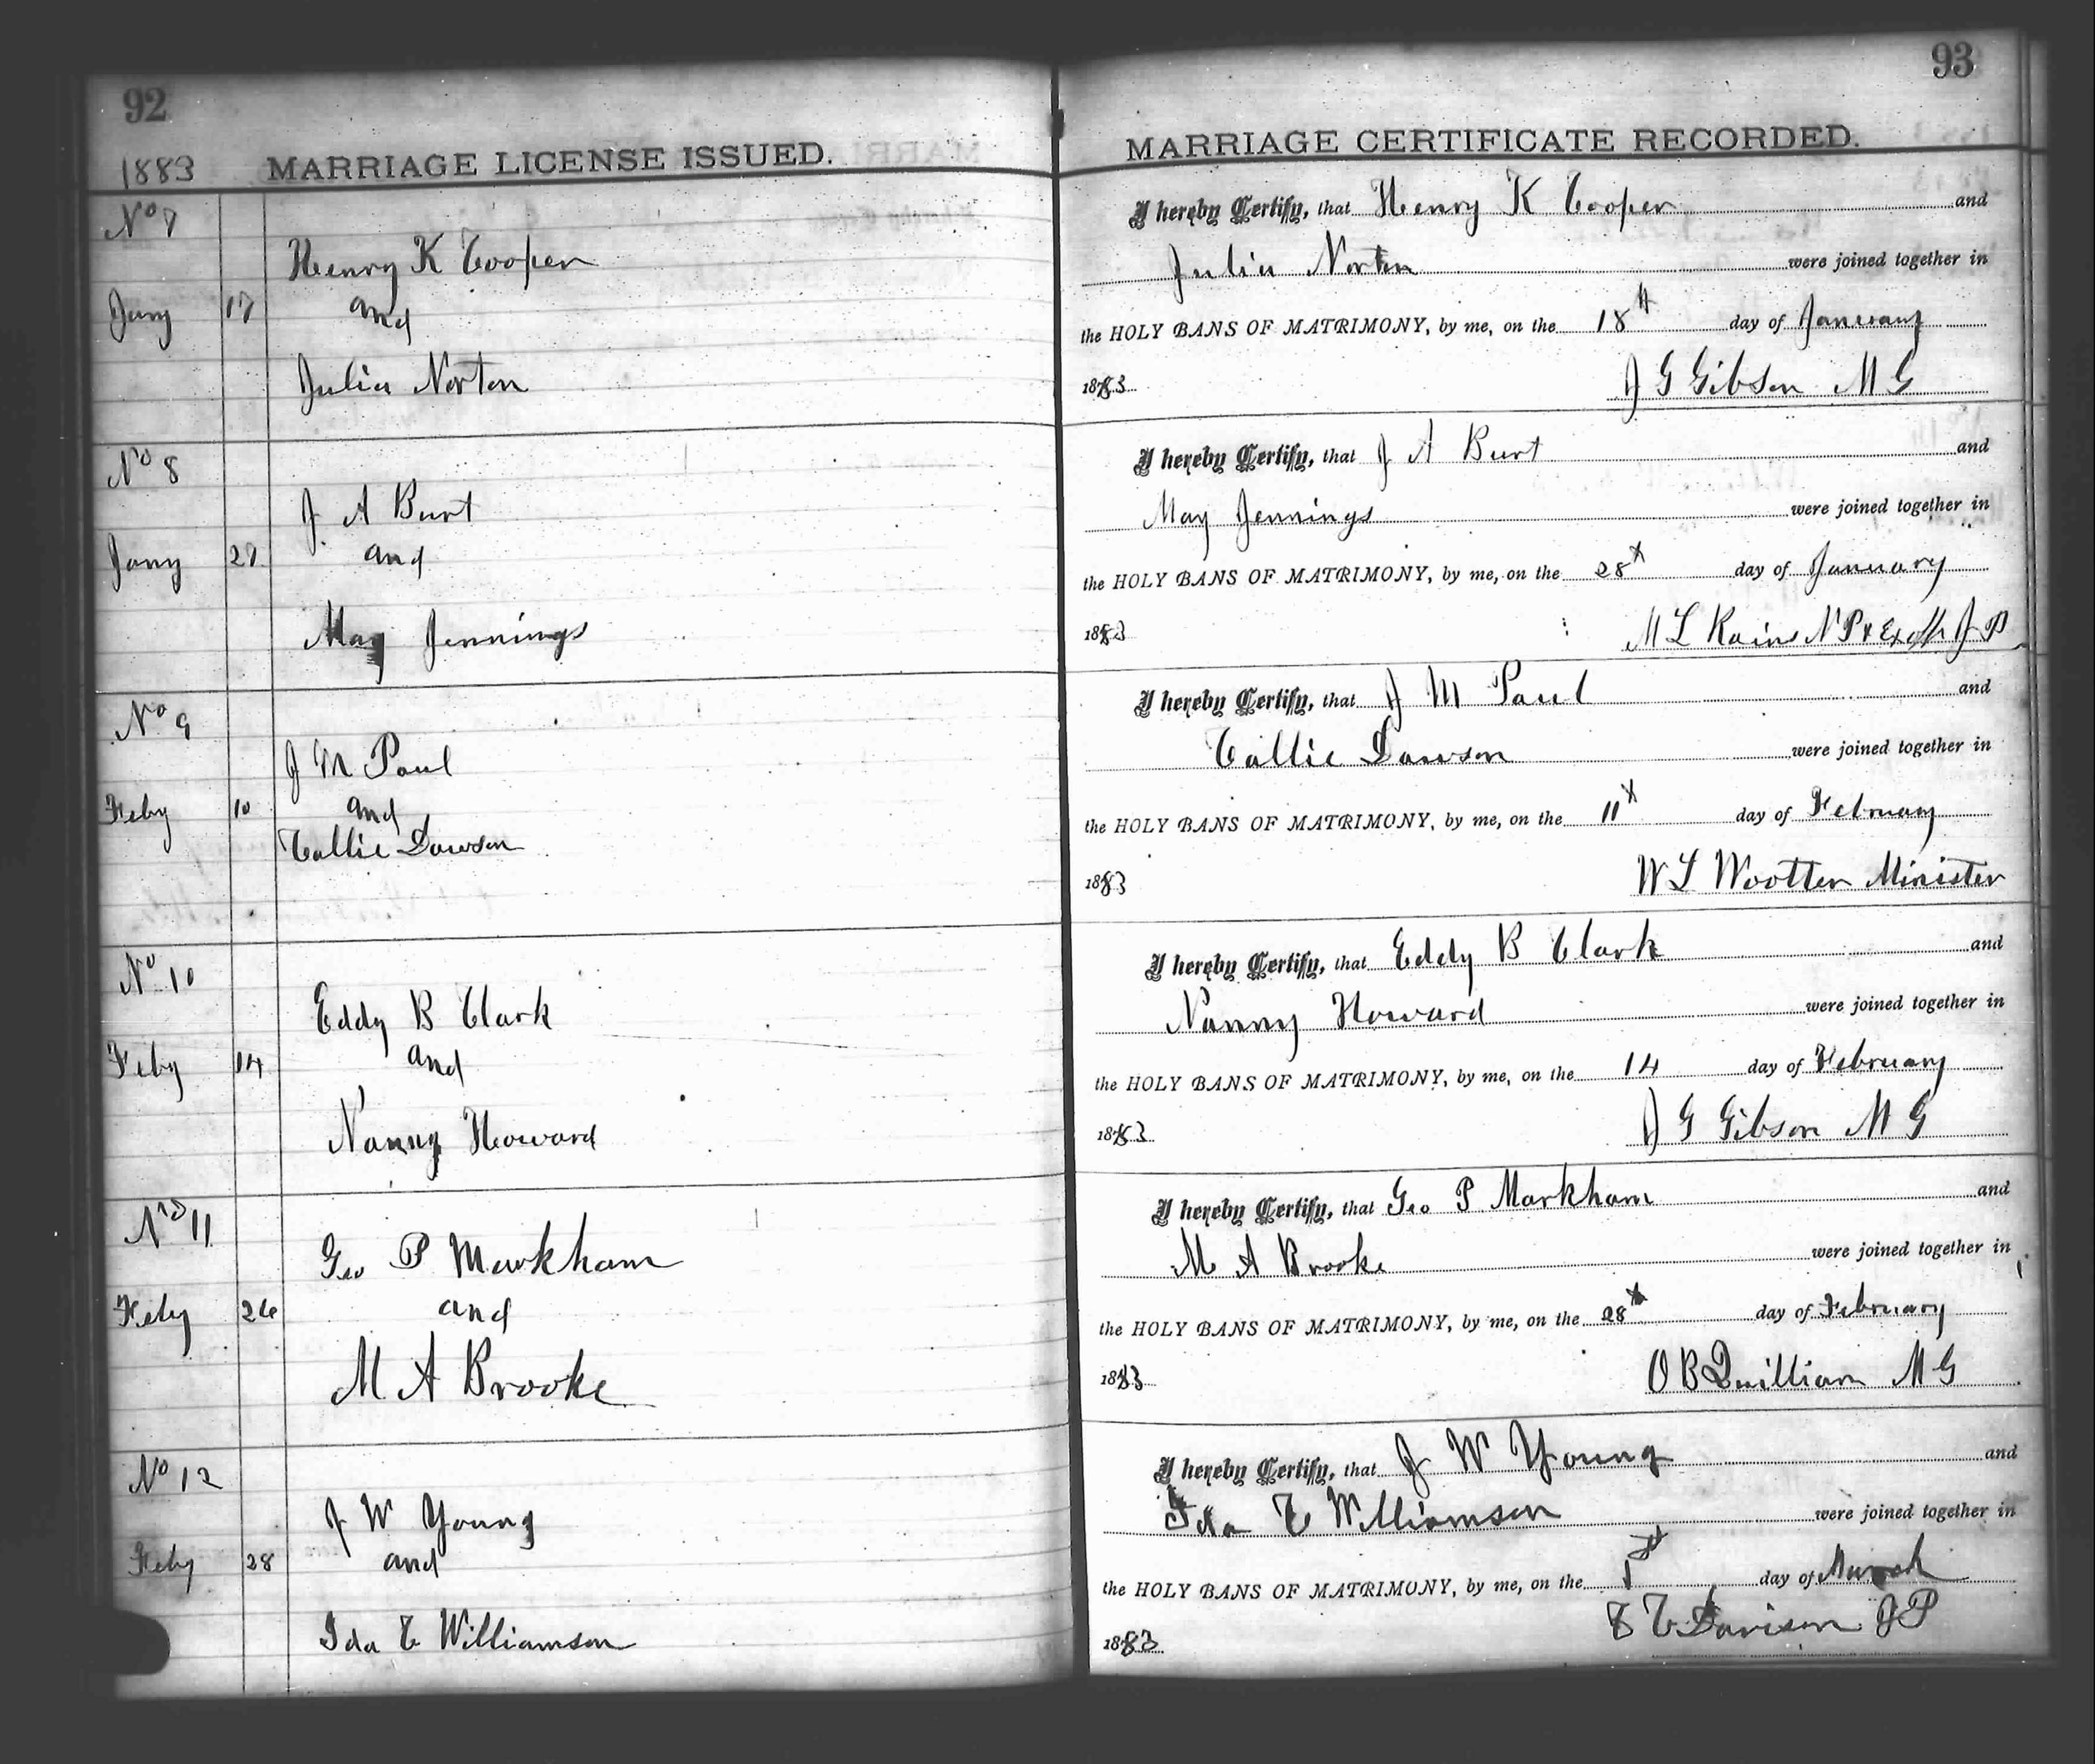 92
1883 MARRIAGE LICENSE ISSUED.
No 7
Henry K Cooper
Jany 17 and
Julia Norton
No 8
J A Burt
Jany 27 and
May Jennings
No 9
J M Paul
Feby 10 and
Callie Dawson
No 10
Eddy B Clark
Feby 14 and
Nanny Howard
No 11
Geo P Markham
Feby 26 and
M A Brooke
No 12
J W Young
Feby 28 and
Ida C Williamson
93
MARRIAGE CERTIFICATE RECORDED.
I hereby Certify, that Henry K Cooper and
Julia Norton were joined together in
the HOLY BANS OF MATRIMONY, by me, on the 18th day of January
1883 J G Gibson M G
I hereby Certify, that J A Burt and
May Jennings were joined together in
the HOLY BANS OF MATRIMONY, by me, on the 28th day of January
1883 M L Rains N P & Exoff J P
I hereby Certify, that J M Paul and
Callie Dawson were joined together in
the HOLY BANS OF MATRIMONY, by me, on the 11th day of February
1883 W L Wootten Minister
I hereby Certify, that Eddy B Clark and
Nanny Howard were joined together in
the HOLY BANS OF MATRIMONY, by me, on the 14 day of February
1883 J G Gibson M G
I hereby Certify, that Geo P Markham and
M A Brooke were joined together in
the HOLY BANS OF MATRIMONY, by me, on the 28th day of February
1883 O B Quilliam M G
I hereby Certify, that J W Young and
Ida C Williamson were joined together in
the HOLY BANS OF MATRIMONY, by me, on the 1st day of March
1883 C Davison J P